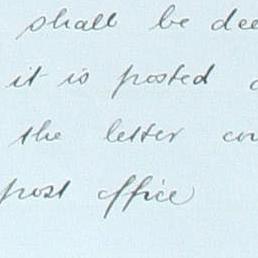 shall be dee
it is posted
the letter con
post office